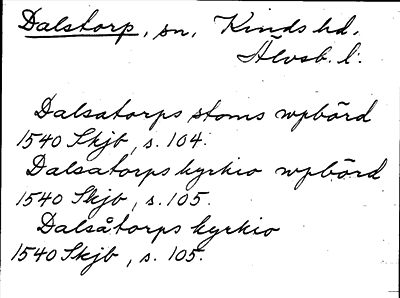 Dalstorp, sn, Kinds hd.
Älvsb. l.
Dalsatorps stoms wpbörd
1540 Skjb, s. 104.
Dalsatorps kyrkio wpbörd
1540 Skjb, s. 105.
Dalsåtorps kyrkio
1540 Skjb, s. 105.